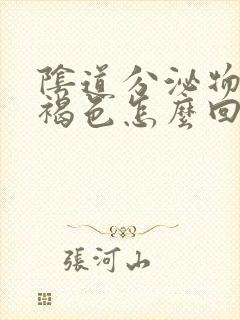 陰道分泌物
褐色怎麼回
張河山